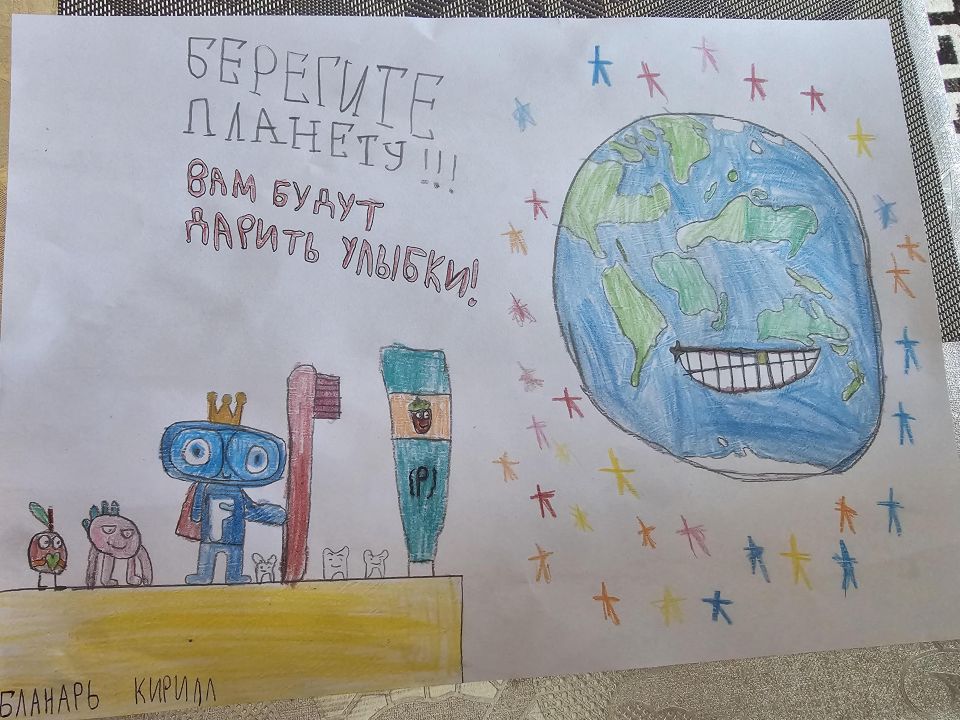 БЕРЕГИТЕ
ПЛАНЕТУ!!!
ВАМ БУДУТ
ДАРИТЬ УЛЫБКИ!
F
(P)
БЛАНАРЬ КИРИЛЛ